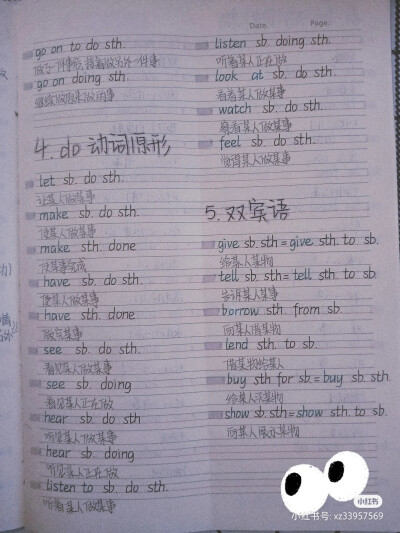 go on to do sth.
做了一件事后,接着做另外一件事
go on doing sth.
继续做原来做的事
4. do 动词原形
let sb. do sth.
让某人做某事
make sb. do sth.
使某人做某事
make sth. done
使某事完成
have sb. do sth.
使某人做某事
have sth. done
做完某事
see sb. do sth.
看见某人做某事
see sb. doing
看见某人正在做
hear sb. do sth
听见某人做某事
hear sb. doing
听见某人正在做
listen to sb. do sth.
听着某人做某事
Date. Page.
listen sb. doing sth.
听着某人正在做
look at sb. do sth.
看着某人做某事
watch sb. do sth.
观看某人做某事
feel sb. do sth.
觉得某人做某事
5. 双宾语
give sb. sth = give sth. to sb.
给某人某物
tell sb. sth = tell sth. to sb.
告诉某人某事
borrow sth. from sb.
向某人借某物
lend sth. to sb.
借某物给某人
buy sth for sb. = buy sb. sth
给某人买某物
show sb. sth = show sth. to sb.
向某人展示某物
小红书
小红书号: xz33957569